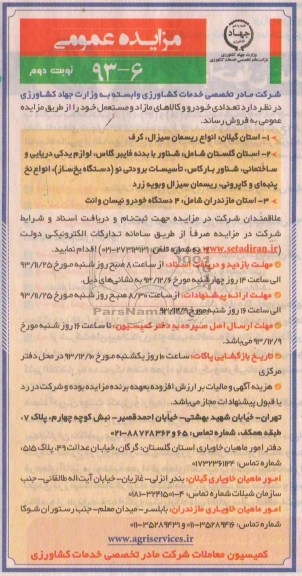 مزایده عمومی
۹۳-۶
نوبت دوم
جهاد
وزارت جهاد کشاورزی
شرکت مادر تخصصی خدمات کشاورزی
شرکت مادر تخصصی خدمات کشاورزی وابسته به وزارت جهاد کشاورزی
در نظر دارد تعدادی خودرو و کالاهای مازاد و مستعمل خود را از طریق مزایده
عمومی به فروش رساند.
۱- استان گیلان، انواع ریسمان سیزال، کرف
۲- استان گلستان شامل، شناور با بدنه فایبر گلاس، لوازم یدکی دریایی و
ساختمانی، شناور بارکاس، تأسیسات برودتی نو (دستگاه یخ‌ساز)، انواع نخ
پنبه‌ای و کاپرونی، ریسمان سیزال وبویه زرد
۳- استان مازندران شامل، ۴ دستگاه خودرو نیسان وانت
علاقمندان شرکت در مزایده جهت ثبت‌نام و دریافت اسناد و شرایط
شرکت در مزایده صرفاً از طریق سامانه تدارکات الکترونیکی دولت
(www.setadiran.ir) به شماره تلفن: ۲۷۳۱۳۱۳۱-۰۲۱ اقدام نمایید.
مهلت بازدید و دریافت اسناد: از ساعت ۸ صبح روز شنبه مورخ ۹۳/۱۱/۲۵
الی ساعت ۱۴ روز چهارشنبه مورخ ۹۳/۱۲/۶ به نشانی‌های ذیل.
مهلت ارائه پیشنهادات: از ساعت ۸/۳۰ صبح روز شنبه مورخ ۹۳/۱۱/۲۵
الی ساعت ۱۶ روز شنبه مورخ ۹۳/۱۲/۹
مهلت ارسال اصل سپرده به دفتر کمیسیون: تا ساعت ۱۶ روز شنبه مورخ
۹۳/۱۲/۹ می‌باشد.
تاریخ بازگشایی پاکات: ساعت ۱۰ روز یکشنبه مورخ ۹۳/۱۲/۱۰ در محل دفتر
مرکزی
هزینه آگهی و مالیات بر ارزش افزوده بعهده برنده مزایده بوده و شرکت در رد
یا قبول پیشنهادات مجاز می‌باشد.
تهران- خیابان شهید بهشتی- خیابان احمدقصیر- نبش کوچه چهارم، پلاک ۷،
طبقه همکف، شماره تماس: ۶۵ و ۸۸۷۲۸۳۶۲-۰۲۱
دفتر امور ماهیان خاویاری استان گلستان: گرگان، خیابان عدالت ۴۹، پلاک ۵۱۵،
شماره تماس:
امور ماهیان خاویاری گیلان: بندر انزلی- غازیان- خیابان آیت‌اله طالقانی- جنب
سازمان شیلات شماره تماس:
امور ماهیان خاویاری مازندران: بابلسر- میدان معلم- جنب رستوران شوکا
شماره تماس:
www.agriservices.ir
کمیسیون معاملات شرکت مادر تخصصی خدمات کشاورزی